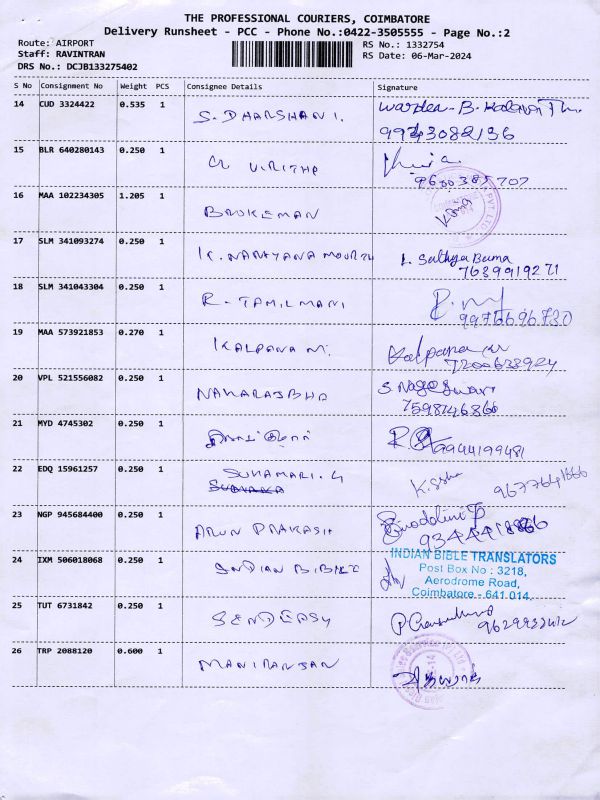 THE PROFESSIONAL COURIERS, COIMBATORE
Delivery Runsheet - PCC - Phone No.:0422-3505555 - Page No.:2
Route: AIRPORT
Staff: RAVINTRAN
DRS No.: DCJB133275402
RS No.: 1332754
RS Date: 06-Mar-2024
S No Consignment No Weight PCS Consignee Details Signature
14 CUD 3324422 0.535 1 S. DHARSHANI.
9943082136
15 BLR 640280143 0.250 1 VIRITHA
9600385707
16 MAA 102234305 1.205 1 BROKEMAN
17 SLM 341093274 0.250 1 K. NARAYANA MOORTH L. Sathya Buma
7639919271
18 SLM 341043304 0.250 1 R. TAMILMANI
9976696730
19 MAA 573921853 0.270 1 KALPANA M. Kalpana
7200638924
20 VPL 521556082 0.250 1 S. Nageswari
7598146866
21 MYD 4745302 0.250 1
9944199481
22 EDQ 15961257 0.250 1 SUKAMARI. G K. Ssha
23 NGP 945684400 0.250 1 ARUN PRAKASH
24 IXM 506018068 0.250 1 INDIAN BIBLE INDIAN BIBLE TRANSLATORS
Post Box No : 3218,
Aerodrome Road,
Coimbatore - 641 014.
25 TUT 6731842 0.250 1
26 TRP 2088120 0.600 1 MANIRANJAN